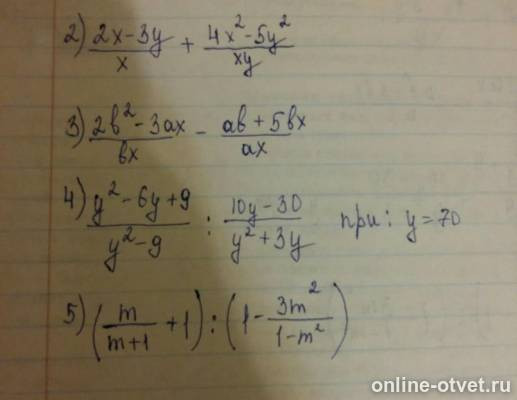 2) (2x-3y)/x + (4x²-5y²)/xy
3) (2b²-3ax)/bx - (ab+5bx)/ax
4) (y²-6y+9)/(y²-9) : (10y-30)/(y²+3y) при: y=70
5) (m/(m+1) +1) : (1- 3m²/(1-m²))
online-otvet.ru